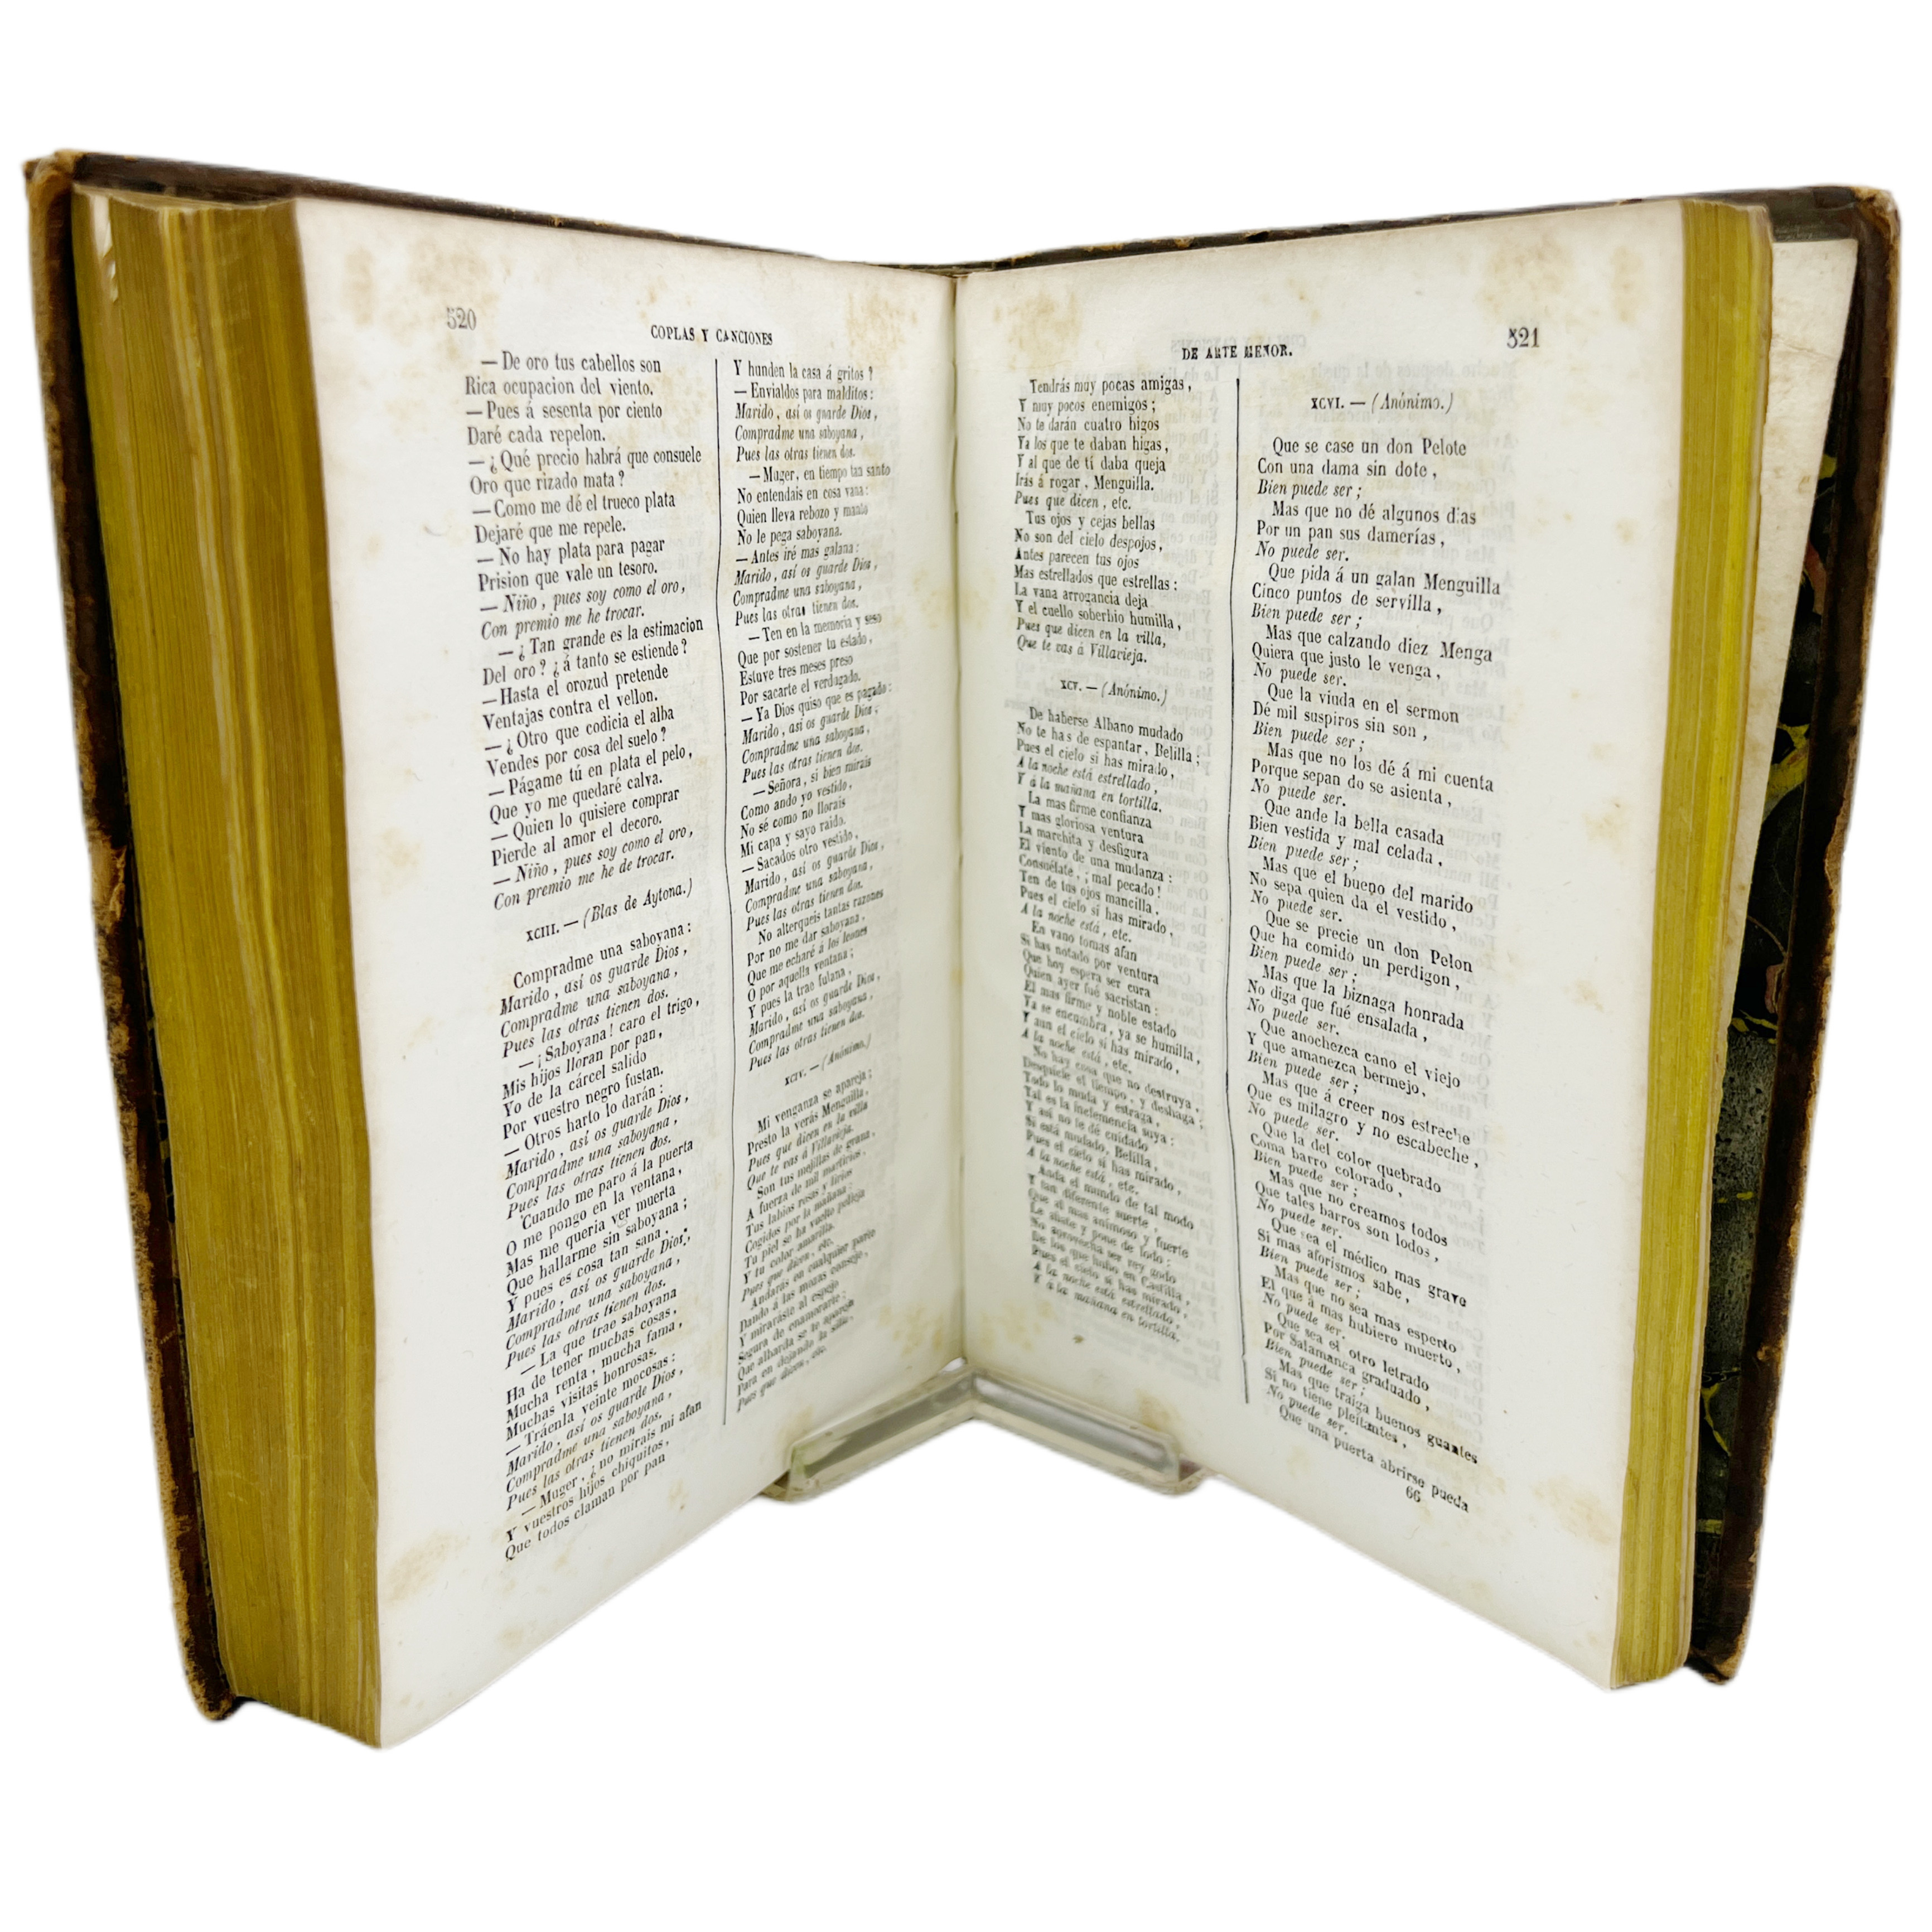 520
COPLAS Y CANCIONES
— De oro tus cabellos son
Rica ocupacion del viento.
— Pues á sesenta por ciento
Daré cada repelon.
— ¿Qué precio habrá que consuele
Oro que rizado mata?
— Como me dé el trueco plata
Dejaré que me repele.
— No hay plata para pagar
Prision que vale un tesoro.
— Niño, pues soy como el oro,
Con premio me he trocar.
— ¿Tan grande es la estimacion
Del oro? ¿á tanto se estiende?
— Hasta el orozud pretende
Ventajas contra el vellon.
— ¿Otro que codicia el alba
Vendes por cosa del suelo?
— Págame tú en plata el pelo,
Que yo me quedaré calva.
— Quien lo quisiere comprar
Pierde al amor el decoro.
— Niño, pues soy como el oro,
Con premio me he de trocar.
XCIII. — (Blas de Aytona.)
Compradme una saboyana:
Marido, así os guarde Dios,
Compradme una saboyana,
Pues las otras tienen dos.
— ¡Saboyana! caro el trigo,
Mis hijos lloran por pan,
Yo de la cárcel salido
Por vuestro negro fustan.
— Otros harto lo darán:
Marido, así os guarde Dios,
Compradme una saboyana,
Pues las otras tienen dos.
Cuando me paro á la puerta
O me pongo en la ventana,
Mas me queria ver muerta
Que hallarme sin saboyana;
Y pues es cosa tan sana,
Marido, así os guarde Dios,
Compradme una saboyana,
Pues las otras tienen dos.
— La que trae saboyana
Ha de tener muchas cosas,
Mucha renta, mucha fama,
Muchas visitas honrosas.
— Tráenla veinte mocosas:
Marido, así os guarde Dios,
Compradme una saboyana,
Pues las otras tienen dos.
— Muger, ¿no mirais mi afan
Y vuestros hijos chiquitos,
Que todos claman por pan
Y hunden la casa á gritos?
— Envialdos para malditos:
Marido, así os guarde Dios,
Compradme una saboyana,
Pues las otras tienen dos.
— Muger, en tiempo tan santo
No entendais en cosa vana:
Quien lleva rebozo y manto
No le pega saboyana.
— Antes iré mas galana:
Marido, así os guarde Dios,
Compradme una saboyana,
Pues las otras tienen dos.
— Ten en la memoria y seso
Que por sostener tu estado,
Estuve tres meses preso
Por sacarte el verdugado.
— Ya Dios quiso que es pagado:
Marido, así os guarde Dios,
Compradme una saboyana,
Pues las otras tienen dos.
— Señora, si bien mirais
Como ando yo vestido,
No sé como no llorais
Mi capa y sayo raido.
— Sacados otro vestido,
Marido, así os guarde Dios,
Compradme una saboyana,
Pues las otras tienen dos.
No alterqueis tantas razones
Por no me dar saboyana,
Que me echaré á los leones
O por aquella ventana;
Y pues la trae fulana,
Marido, así os guarde Dios,
Compradme una saboyana,
Pues las otras tienen dos.
XCIV. — (Anónimo.)
Mi venganza se apareja;
Presto la verás Menguilla,
Pues que dicen en la villa
Que te vas á Villavieja.
Son tus mejillas de grana,
A fuerza de mil martirios,
Tus labios rosas y lirios
Cogidos por la mañana;
Tu piel se ha vuelto pelleja
Y tu color amarilla.
Pues que dicen, etc.
Andarás en cualquier parte
Dando á las mozas consejo,
Y miraráste al espejo
Segura de enamorarte;
Que albarda se te apareja
Para en dejando la silla,
Pues que dicen, etc.
DE ARTE MENOR.
521
Tendrás muy pocas amigas,
Y muy pocos enemigos;
No te darán cuatro higos
Ya los que te daban higas,
Y al que de tí daba queja
Irás á rogar, Menguilla.
Pues que dicen, etc.
Tus ojos y cejas bellas
No son del cielo despojos,
Antes parecen tus ojos
Mas estrellados que estrellas:
La vana arrogancia deja
Y el cuello soberbio humilla,
Pues que dicen en la villa,
Que te vas á Villavieja.
XCV. — (Anónimo.)
De haberse Albano mudado
No te has de espantar, Belilla;
Pues el cielo si has mirado,
A la noche está estrellado,
Y á la mañana en tortilla.
La mas firme confianza
Y mas gloriosa ventura
La marchita y desfigura
El viento de una mudanza:
Consuélate, ¡mal pecado!
Ten de tus ojos mancilla,
Pues el cielo si has mirado,
A la noche está, etc.
En vano tomas afan
Si has notado por ventura
Que hoy espera ser cura
Quien ayer fué sacristan:
El mas firme y noble estado
Ya se encumbra, ya se humilla,
Y aun el cielo si has mirado,
A la noche está, etc.
No hay cosa que no destruya,
Desquicie el tiempo, y deshaga;
Todo lo muda y estraga,
Tal es la inclemencia suya:
Y así no te dé cuidado
Si está mudado, Belilla,
Pues el cielo si has mirado,
A la noche está, etc.
Anda el mundo de tal modo
Y tan diferente suerte,
Que al mas animoso y fuerte
Le abate y pone de lodo:
No aprovecha ser rey godo
De los que hubo en Castilla,
Pues el cielo si has mirado,
A la noche está estrellado,
Y á la mañana en tortilla.
XCVI. — (Anónimo.)
Que se case un don Pelote
Con una dama sin dote,
Bien puede ser;
Mas que no dé algunos dias
Por un pan sus damerías,
No puede ser.
Que pida á un galan Menguilla
Cinco puntos de servilla,
Bien puede ser;
Mas que calzando diez Menga
Quiera que justo le venga,
No puede ser.
Que la viuda en el sermon
Dé mil suspiros sin son,
Bien puede ser;
Mas que no los dé á mi cuenta
Porque sepan do se asienta,
No puede ser.
Que ande la bella casada
Bien vestida y mal celada,
Bien puede ser;
Mas que el bueno del marido
No sepa quien da el vestido,
No puede ser.
Que se precie un don Pelon
Que ha comido un perdigon,
Bien puede ser;
Mas que la biznaga honrada
No diga que fué ensalada,
No puede ser.
Que anochezca cano el viejo
Y que amanezca bermejo,
Bien puede ser;
Mas que á creer nos estreche
Que es milagro y no escabeche,
No puede ser.
Que la del color quebrado
Coma barro colorado,
Bien puede ser;
Mas que no creamos todos
Que tales barros son lodos,
No puede ser.
Que sea el médico mas grave
Si mas aforismos sabe,
Bien puede ser;
Mas que no sea mas esperto
El que á mas hubiere muerto,
No puede ser.
Que sea el otro letrado
Por Salamanca graduado,
Bien puede ser;
Mas que traiga buenos guantes
Si no tiene pleitantes,
No puede ser.
Que una puerta abrirse pueda
66